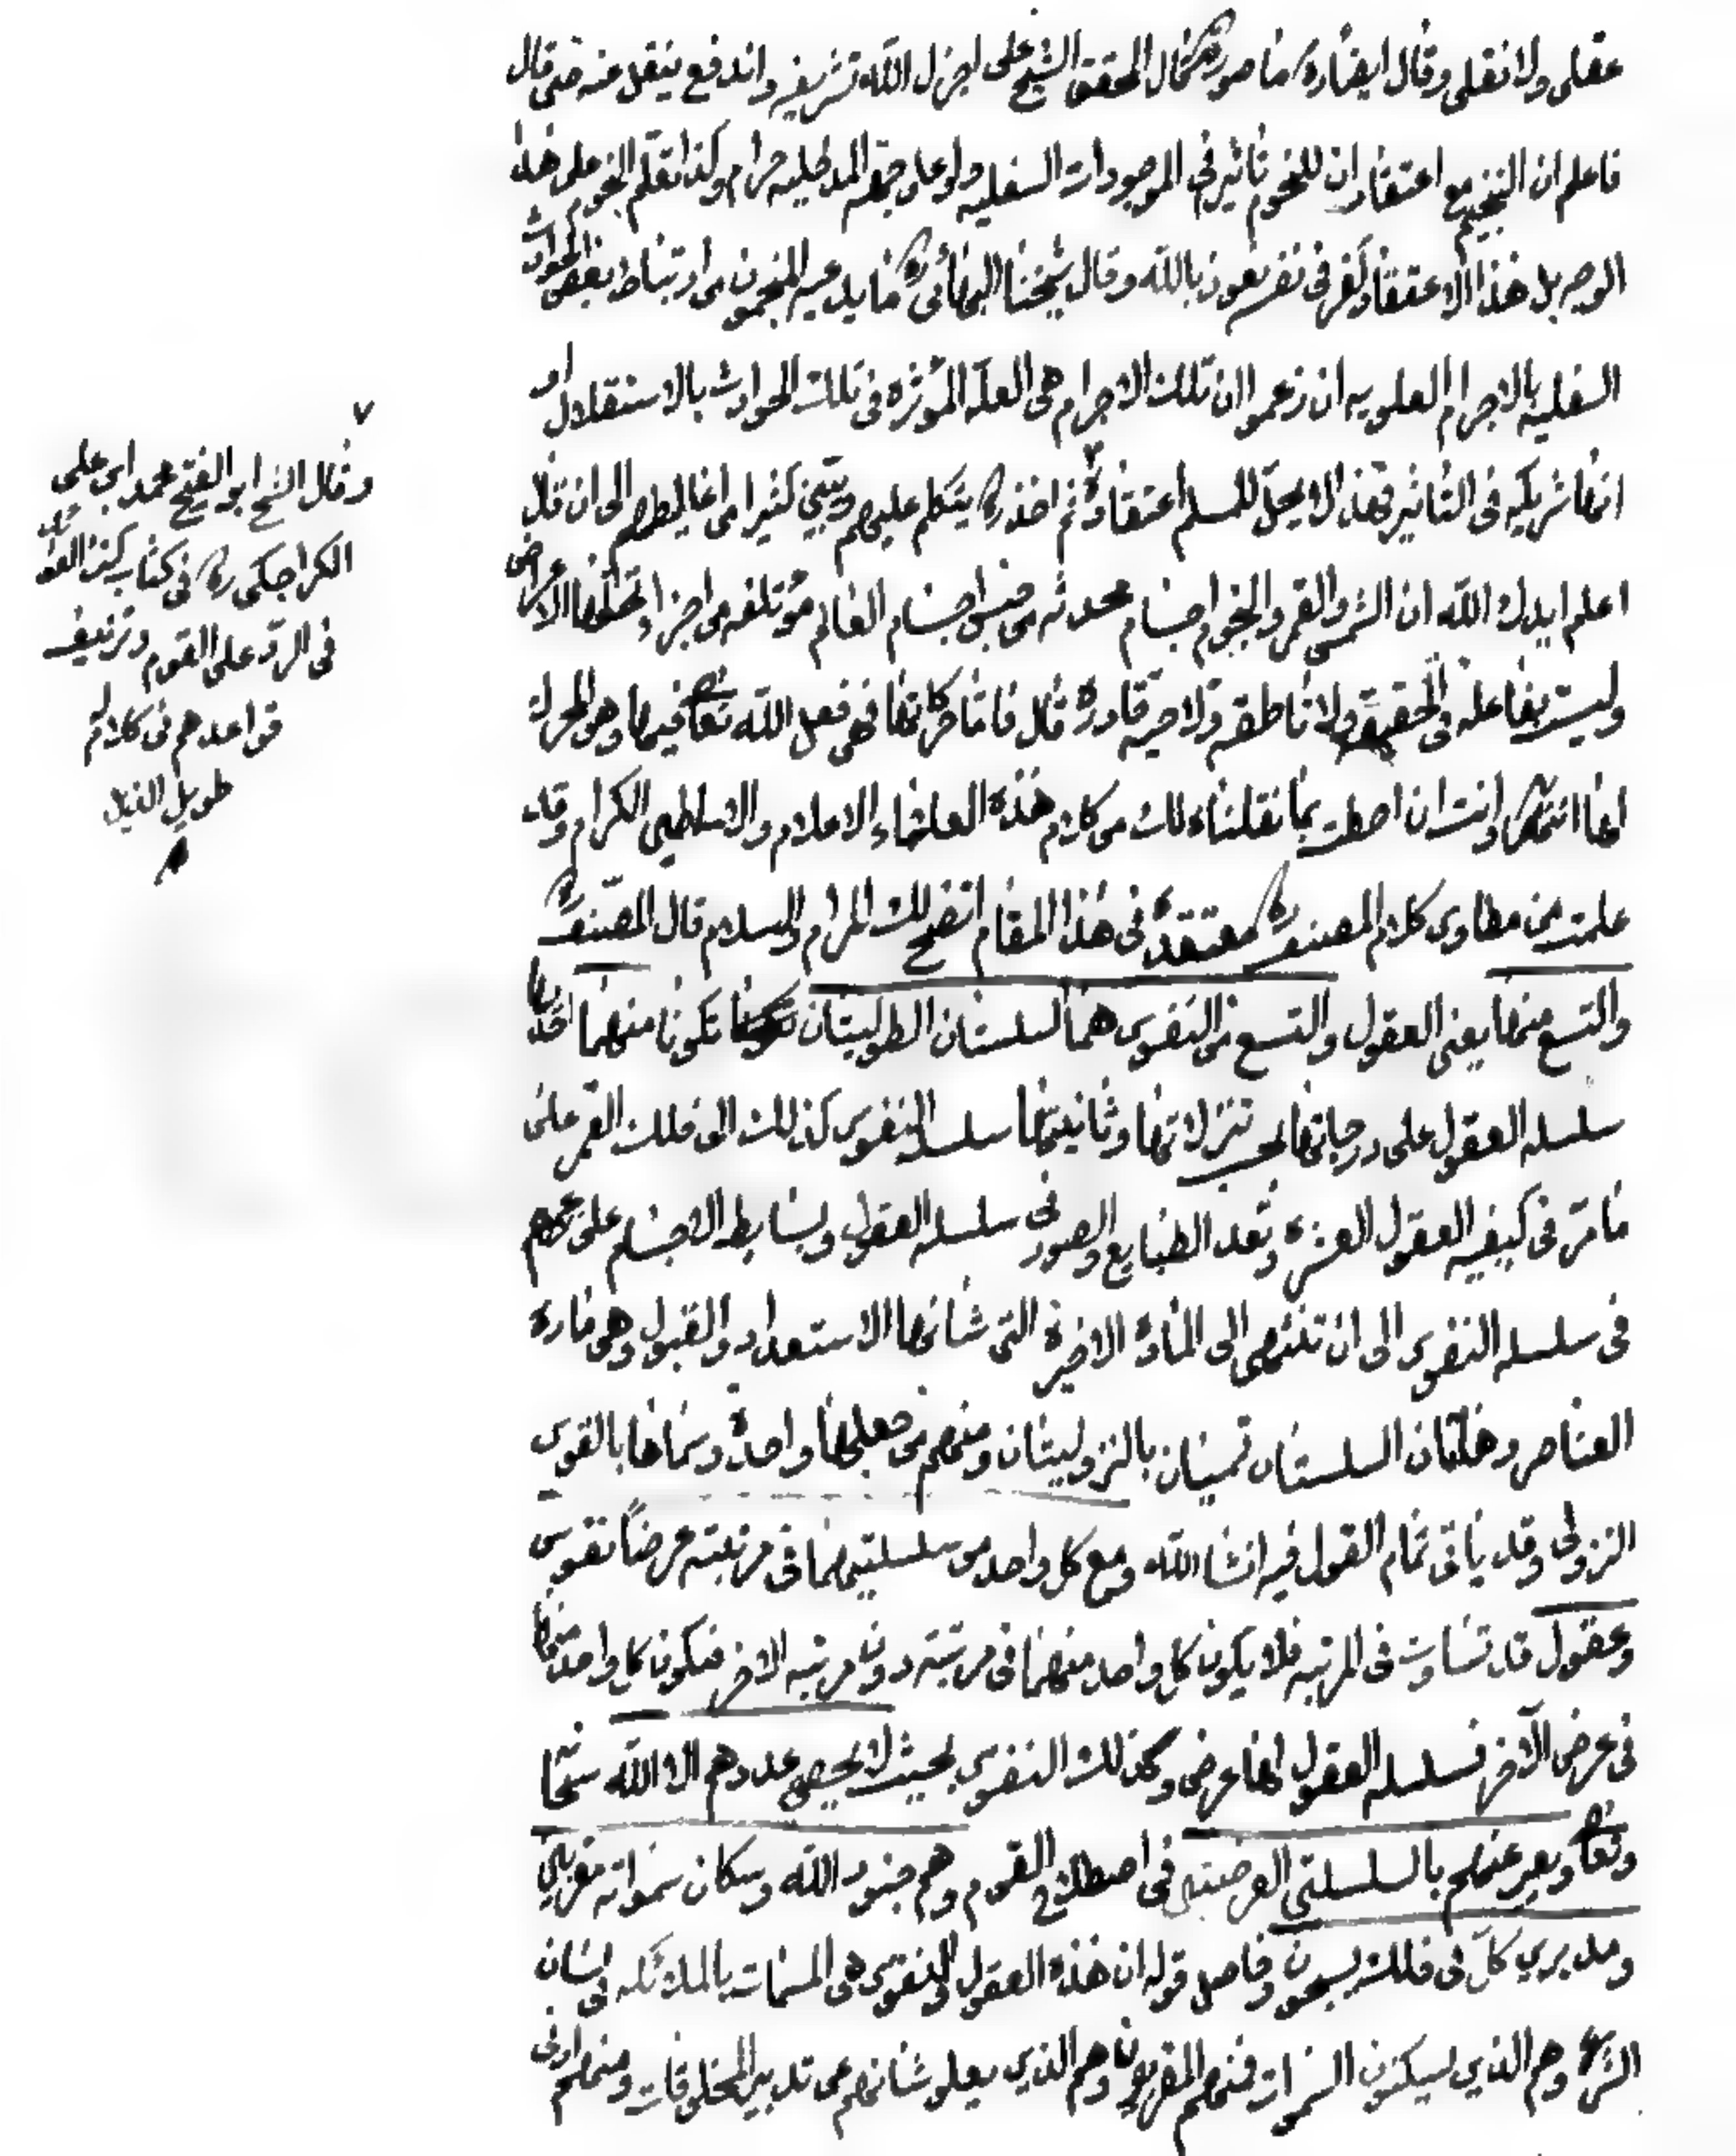 عقلي ولا نقلي وقال ايضا ره ما صورته قال المحقق الشيخ علي اجزل الله تشريفه واندفع ينقل عنه حتى قال
فاعلم ان التنجيم مع اعتقاد ان للنجوم تاثير في الموجودات السفليه ولو على جهه المدخليه حرام وكذا تعلم النجوم على هذا
الوجه بل هذا الاعتقاد كفر في نفسه نعوذ بالله وقال شيخنا البهائي ره ما يدعيه المنجمون من ارتباط بعض الحوادث
السفليه بالاجرام العلويه ان زعموا ان تلك الاجرام هي العله المؤثره في تلك الحوادث بالاستقلال او
انها شريكه في التاثير فهذا لا يحل للمسلم اعتقاده ثم اخذ ره يتكلم عليهم ويبين كثيرا من اغاليطهم الى ان قال
اعلم ايدك الله ان الشمس والقمر والنجوم اجسام محدثه من جنس اجسام العالم مؤتلفه من اجزاء تحلها الاعراض
وليست بفاعله في الحقيقه ولا ناطقه ولا حيه قادره قال فاما حركاتها فهي فعل الله تعا فيها وهو المحرك
لها انتهى وانت ان احطت بما نقلناه لك من كلام هذه العلماء الاعلام والاساطين الكرام وقد
علمت من مطاوي كلام المصنف ره معتقده في هذا المقام اتضح لك المرام والسلام قال المصنف ره
والتسع منها يعني العقول والتسع من النفوس هما السلستان الطوليتان تكونا منهما احدها
سلسله العقول على درجاتها بحسب تنزلاتها وثانيتها سلسله النفوس كذلك الى فلك القمر على
ما مر في كيفيه العقول العشره وتعد الطبايع والصور في سلسله العقول وبسايط الاجسام على
في سلسله النفوس الى ان تنتهي الى الماده الاخيرة التي شانها الاستعداد والقبول وهي ماده
العناصر وهاتان السلستان تسميان بالنزوليتان ومنهم من جعلها واحدة وسماها بالقوس
النزولي وقد ياتي تمام القول فيه انشا الله ومع كل واحد من سلسلتيهما في مرتبته عرضاً نفوس
وعقول قد تساوت في المرتبه فلا يكون كل واحد منهما في مرتبته دون مرتبه الاخر فتكون كل واحد منها
في عرض الآخر فسلسله العقول لها عرض وكذلك النفوس بحيث لا يحصي عددهم الا الله سبحانه
وتعا ويعبر عنهم بالسلسلتين العرضيتين في اصطلاح القوم وهم جنود الله وسكان سمواته مقربين
ومدبرين كل في فلك يسبحون وحاصل قوله ان هذه العقول والنفوس هي المسمات بالملائكه في لسان
الشرع وهم الذين يسكنون السموات فمنهم المقربون وهم الذين يعلو شانهم عن تدبير المخلوقات ومنهم ادنى
٧
وقال الشيخ ابو الفتح محمد ابن علي
الكراجكي ره في كتاب كنز الفوائد
في الرد على القوم وتزييف
قواعدهم في كلام له
طويل الذيل